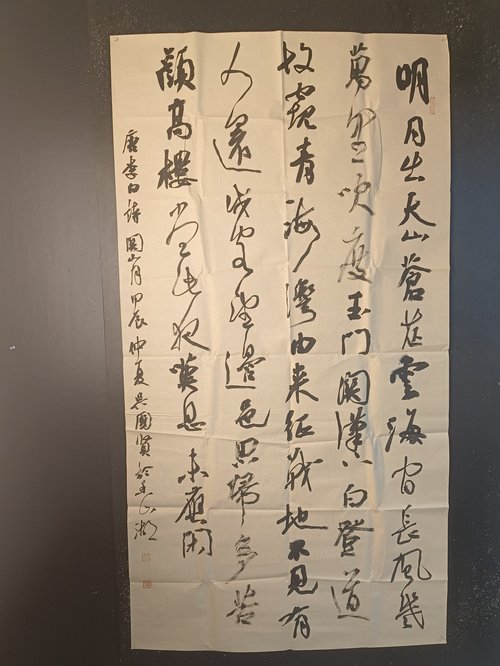 明月出天山蒼茫雲海間長風幾
萬里吹度玉門關漢下白登道
胡窺青海灣由來征戰地不見有
人還戍客望邊色思歸多苦
顏高樓當此夜歎息未應閑
唐李白詩關山月甲辰仲夏吳國賢於